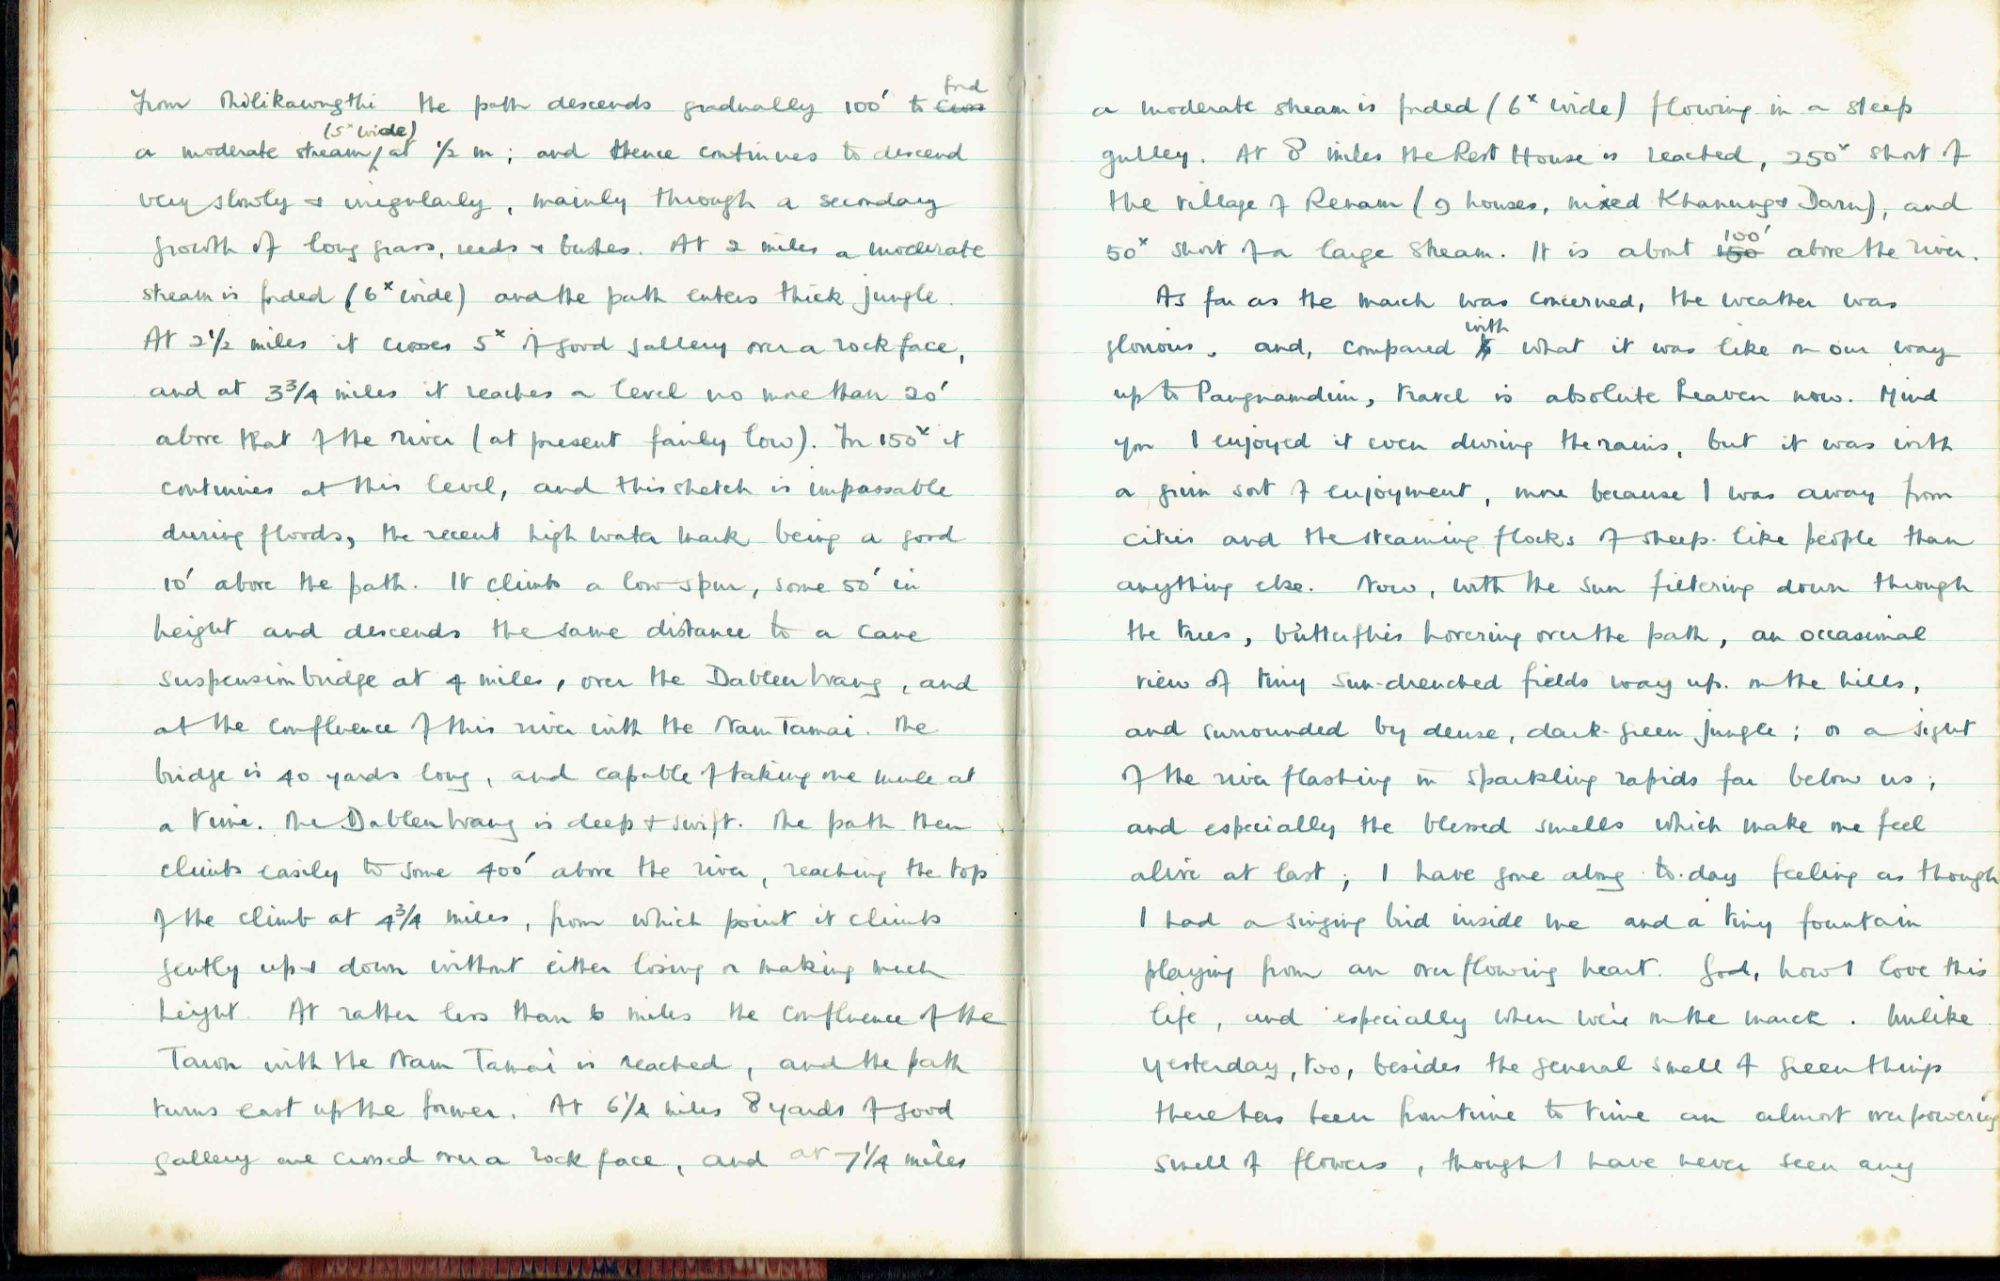 From Thilikawngthi the path descends gradually 100' to ~~cross~~ ford
a moderate stream (5ˣ wide) at ½ m; and thence continues to descend
very slowly & irregularly, mainly through a secondary
growth of long grass, reeds & bushes. At 2 miles a moderate
stream is forded (6ˣ wide) and the path enters thick jungle.
At 2½ miles it crosses 5ˣ of good gallery over a rock face,
and at 3¾ miles it reaches a level no more than 20'
above that of the river (at present fairly low). For 150ˣ it
continues at this level, and this stretch is impassable
during floods, the recent high water mark being a good
10' above the path. It climbs a low spur, some 50' in
height and descends the same distance to a cane
suspension bridge at 4 miles, over the Dablen Wang, and
at the confluence of this river with the Nam Tamai. The
bridge is 40 yards long, and capable of taking one mule at
a time. The Dablen Wang is deep & swift. The path then
climbs easily to some 400' above the river, reaching the top
of the climb at 4¾ miles, from which point it climbs
gently up & down without either losing or making much
height. At rather less than 6 miles the confluence of the
Taron with the Nam Tamai is reached, and the path
turns east up the former. At 6¼ miles 8 yards of good
gallery are crossed over a rock face, and at 7¼ miles
a moderate stream is forded (6ˣ wide) flowing in a steep
gulley. At 8 miles the Rest House is reached, 250ˣ short of
the village of Renam (9 houses, mixed Khanung & Daru), and
50ˣ short of a large stream. It is about ~~150~~ 100' above the river.
As far as the march was concerned, the weather was
glorious, and, compared ~~to~~ with what it was like on our way
up to Pangnamdim, travel is absolute heaven now. Mind
you I enjoyed it even during the rains, but it was with
a grim sort of enjoyment, more because I was away from
cities and the steaming flocks of sheep-like people than
anything else. Now, with the sun filtering down through
the trees, butterflies hovering over the path, an occasional
view of tiny sun-drenched fields way up on the hills,
and surrounded by dense, dark-green jungle; or a sight
of the river flashing in sparkling rapids far below us;
and especially the blessed smells which make me feel
alive at last; I have gone along to-day feeling as though
I had a singing bird inside me and a tiny fountain
playing from an overflowing heart. God, how I love this
life, and especially when we're on the march. Unlike
yesterday, too, besides the general smell of green things
there has been from time to time an almost overpowering
smell of flowers, though I have never seen any